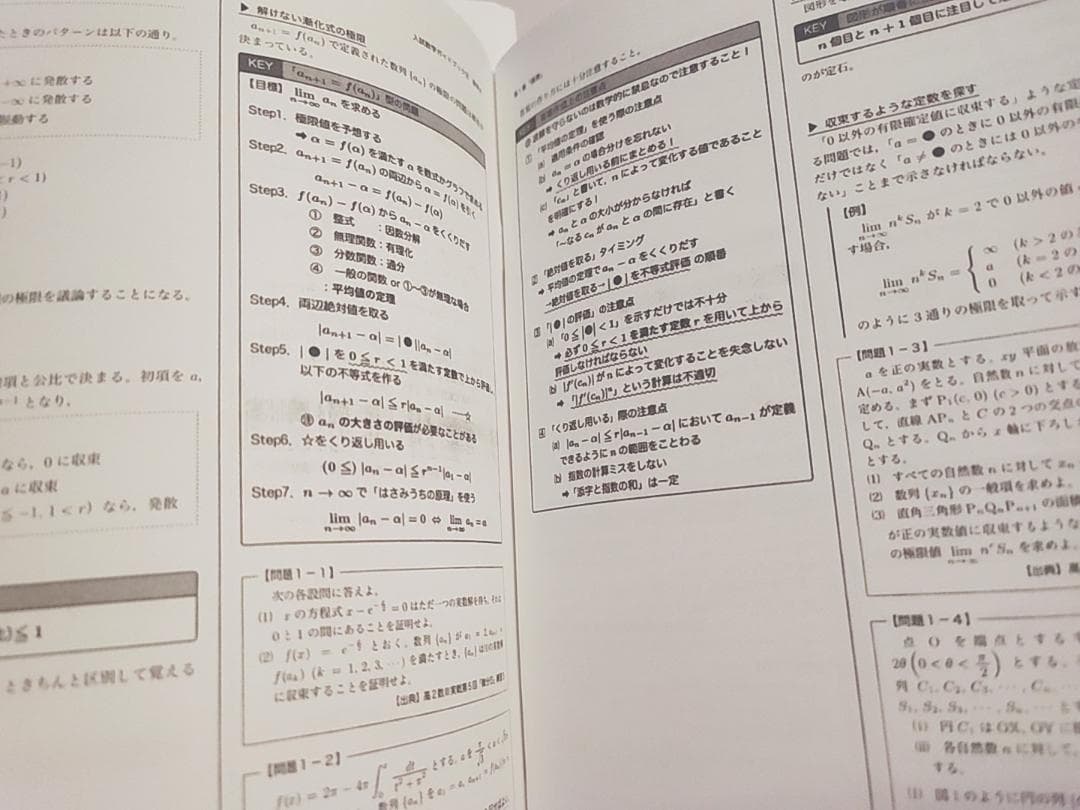 たときのパターンは以下の通り。
+∞ に発散する
−∞ に発散する
振動する
−1)
< r < 1)
の極限を議論することになる。
項と公比で決まる。初項を a,
となり、
なら、0 に収束
a に収束
≦ −1, 1 < r) なら、発散
≦ 1
ときちんと区別して覚える
▶ 解けない漸化式の極限
a_{n+1} = f(a_n) で定義された数列 {a_n} の極限の問題は
決まっている。
KEY 「a_{n+1} = f(a_n)」型の問題
【目標】 lim_{n→∞} a_n を求める
Step1. 極限値を予想する
➡ α = f(α) を満たす α を数式かグラフで求める
Step2. a_{n+1} = f(a_n) の両辺から α = f(α) を引く
a_{n+1} − α = f(a_n) − f(α)
Step3. f(a_n) − f(α) から a_n − α をくくりだす
① 整式 : 因数分解
② 無理関数 : 有理化
③ 分数関数 : 通分
④ 一般の関数 or ①〜③が無理な場合
: 平均値の定理
Step4. 両辺絶対値を取る
|a_{n+1} − α| = |●||a_n − α|
Step5. |●| を 0 ≦ r < 1 を満たす定数で上から評価し、
以下の不等式を作る
|a_{n+1} − α| ≦ r|a_n − α| ―☆
a_n の大きさの評価が必要なことがある
Step6. ☆をくり返し用いる
(0 ≦) |a_n − α| ≦ r^{n−1}|a_1 − α|
Step7. n → ∞ で「はさみうちの原理」を使う
lim_{n→∞} |a_n − α| = 0 ⇔ lim_{n→∞} a_n = α
【問題1−1】
次の各設問に答えよ。
(1) x の方程式 x − e^{−x/2} = 0 はただ一つの実数解を持ち、それは
0 と 1 の間にあることを証明せよ。
(2) f(x) = e^{−x/2} とおく。数列 {a_n} が
f(a_k) (k = 1, 2, 3, ⋯) を満たすとき、{a_n} は
に収束することを証明せよ。
【問題1−2】
f(x) = 2π − 4π ∫ dt
とする。
数列 {a_n} を
答案の作り方には十分注意すること。
を守らないのは数学的に禁忌なので注意すること！
① 「平均値の定理」を使う際の注意点
(a) 適用条件の確認
(b) a_n = α の場合分けを忘れない
➡ くり返し用いる前にまとめる！
(c) 「c_n」と書いて、n によって変化する値であること
を明確にする！
➡ a_n と α の大小が分からなければ
「〜なる c_n が a_n と α の間に存在」と書く
② 「絶対値を取る」タイミング
➡ 平均値の定理で a_n − α をくくりだす
→絶対値を取る→|●| を不等式評価 の順番
③ 「|●| の評価」の注意点
(a) 「0 ≦ |●| < 1」を示すだけでは不十分
➡ 必ず 0 ≦ r < 1 を満たす定数 r を用いて上から
評価しなければならない
(b) |f'(c_n)| が n によって変化することを失念しない
➡ 「|f'(c_n)|^n」という計算は不適切
④ 「くり返し用いる」際の注意点
(a) |a_n − α| ≦ r|a_{n−1} − α| において a_{n−1} が定義
できるように n の範囲をことわる
(b) 指数の計算ミスをしない
➡ 「添字と指数の和」は一定
KEY 図形が順番に
n 個目と n + 1 個目に注目して
のが定石。
▶ 収束するような定数を探す
「0 以外の有限確定値に収束する」ような定
る問題では、「a = ● のときに 0 以外の有限
だけではなく「a ≠ ● のときには 0 以外の
ない」ことまで示さなければならない。
【例】
lim_{n→∞} n^k S_n が k = 2 で 0 以外の値
す場合、
lim_{n→∞} n^k S_n = { ∞ (k > 2 の
a (k = 2 の
0 (k < 2 の
のように 3 通りの極限を取って示す
【問題1−3】
a を正の実数とする。xy 平面の放
A(−a, a²) をとる。自然数 n に対して
定める。まず P₁(c, 0) (c > 0) とする
して、直線 AP_n と C の 2 つの交点の
Q_n とする。Q_n から x 軸に下ろした
とする。
(1) すべての自然数 n に対して x_n
(2) 数列 {x_n} の一般項を求めよ。
(3) 直角三角形 P_nQ_nP_{n+1} の面積
が正の実数値に収束するような
の極限値 lim_{n→∞} n^r S_n を求めよ。
【問題1−4】
点 O を端点とする
2θ (0 < θ < π/2) とする。
列 C₁, C₂, C₃, ⋯, C_n, ⋯
S₁, S₂, S₃, ⋯, S_n, ⋯ とす
(i) 円 C₁ は OX, OY に
(ii) 各自然数 n に対して、
する。
(1) 図1のように円の列